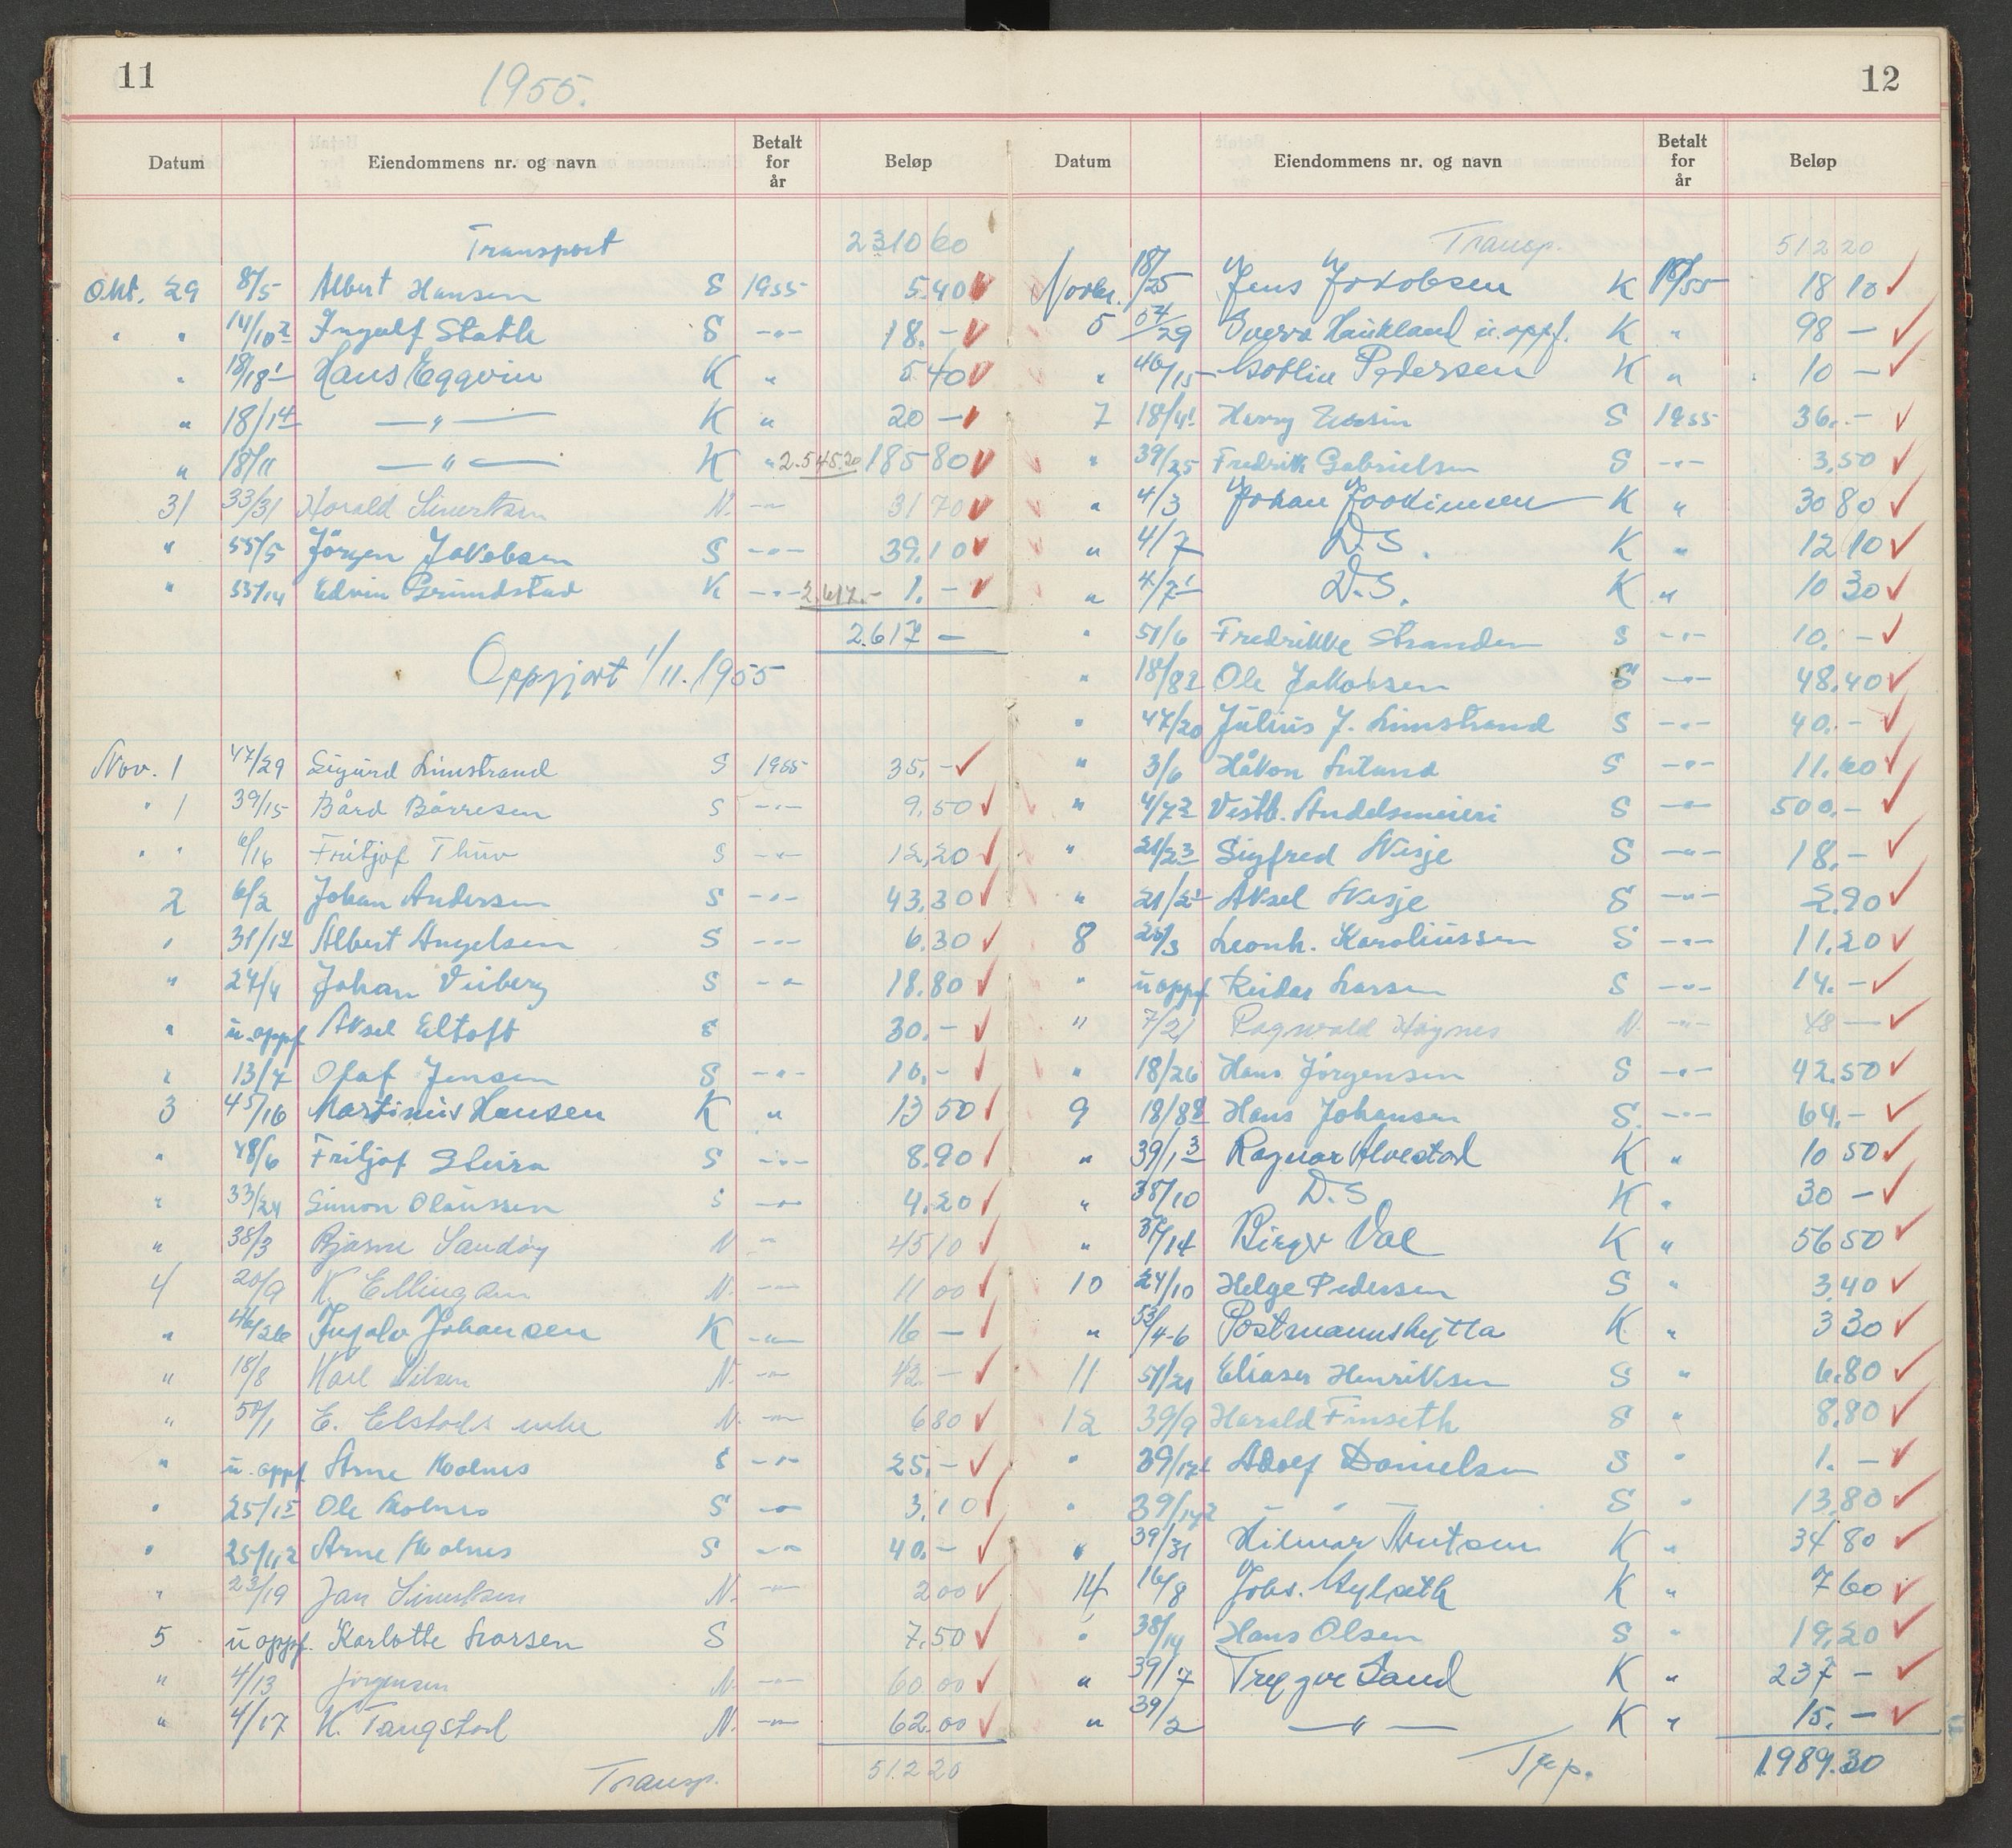 11
1955.
Datum Eiendommens nr. og navn Betalt for år Beløp
Transport 2310 60
Okt. 29 8/5 Albert Hansen S 1955 5.40
" " 14/10² Ingulf Stath S -"- 18.-
" 18/18¹ Hans Eggvin K " 5 40
" 18/14 -"- K " 20 -
" 18/11 -"- K " 2.545.20 185 80
31 33/31 Harald Sivertsen N. -"- 31 70
" 55/5 Jörgen Jakobsen S -"- 39.10
" 33/14 Edvin Grundstad K -"- 2.617.- 1.-
2.617 -
Oppgjort 1/11. 1955
Nov. 1 47/29 Sigurd Limstrand S 1955 35.-
" 1 39/15 Bård Börresen S -"- 9.50
" " 6/16 Fritjof Thuv S -"- 12,20
2 6/2 Johan Andersen S -"- 43.30
" 31/17 Albert Angelsen S -"- 6.30
" 24/4 Johan Viiberg S -"- 18.80
" u.oppf Aksel Eltoft S 30.-
" 13/7 Olaf Jensen S -"- 10.-
3 45/16 Martinus Hansen K " 13 50
" 48/6 Fritjof Sleira S -"- 8.90
" 33/24 Simon Olaussen S -"- 4.20
" 38/3 Bjarne Sandöy N " 45 10
4 20/9 K. Ellingsen N. -"- 11 00
" 46/26 Ingolv Johansen K -"- 16 -
" 18/8 Karl Nilsen N. -"- 42.-
" 50/1 E. Elstads enke N. -"- 6 80
" u.oppf. Arne Holmes S -"- 25.-
" 25/15 Ole Holmes S -"- 3.10
" 25/11,2 Arne Holmes S -"- 40.-
" 23/19 Jan Simonsen N. -"- 2 00
5 u oppf. Karlotte Larsen S 7.50
" 4/13 Jörgensen N. -"- 60 00
" 4/17 K. Tangstad N. -"- 62.00
Transp. 512 20
12
Datum Eiendommens nr. og navn Betalt for år Beløp
Transp. 512 20
Novbr. 18/25 Jens Jakobsen K 19/55 18 10
5 54/29 Sverre Haukland u.oppf. K " 98 -
" 46/15 Pedersen K " 10 -
7 18/41 Harry S 1955 36.-
" 39/25 Fredrik Gabrielsen S -"- 3.50
" 4/3 Johan Joakimsen K " 30 80
" 4/7 D.S. K " 12 10
" 4/7¹ D.S. K " 10 30
" 51/6 Fredrikke Stranden S -"- 10.-
" 18/82 Ole Jakobsen S -"- 48.40
" 47/20 Julius J. Limstrand S -"- 40.-
" 3/6 Håkon Lutund S -"- 11.60
" 4/72 Vestb. Andelsmeieri S -"- 500.-
" 21/23 Sigfred Skisje S -"- 18.-
" 21/21 Aksel Skisje S -"- 2.90
8 28/3 Leonh. Karoliussen S -"- 11.20
" u oppf Reidar Larsen S -"- 14.-
" 7/21 Ragnvald Høynes N. -"- 48 -
" 18/26 Hans Jörgensen S -"- 42.50
9 18/88 Hans Johansen S. -"- 64.-
" 39/1³ Ragnar Alvestad K " 10 50
" 38/10 D.S K " 30 -
" 37/14 Birger Val K " 56 50
10 24/10 Helge Pedersen S " 3.40
" 53/4-6 Postmannshytta K " 3 30
11 51/21 Eliaser Henriksen S " 6.80
12 39/9 Harald Finseth S " 8.80
" 39/171 Adolf Danielsen S " 1.-
" 39/172 - " - S " 13.80
" 39/31 Hilmar Knutsen K " 34 80
14 16/8 Johs. Myhreth K " 7 60
" 38/14 Hans Olsen S " 19.20
" 39/7 Trygve Sand K " 237 -
" 39/2 -"- K " 15.-
Trp. 1.989.30